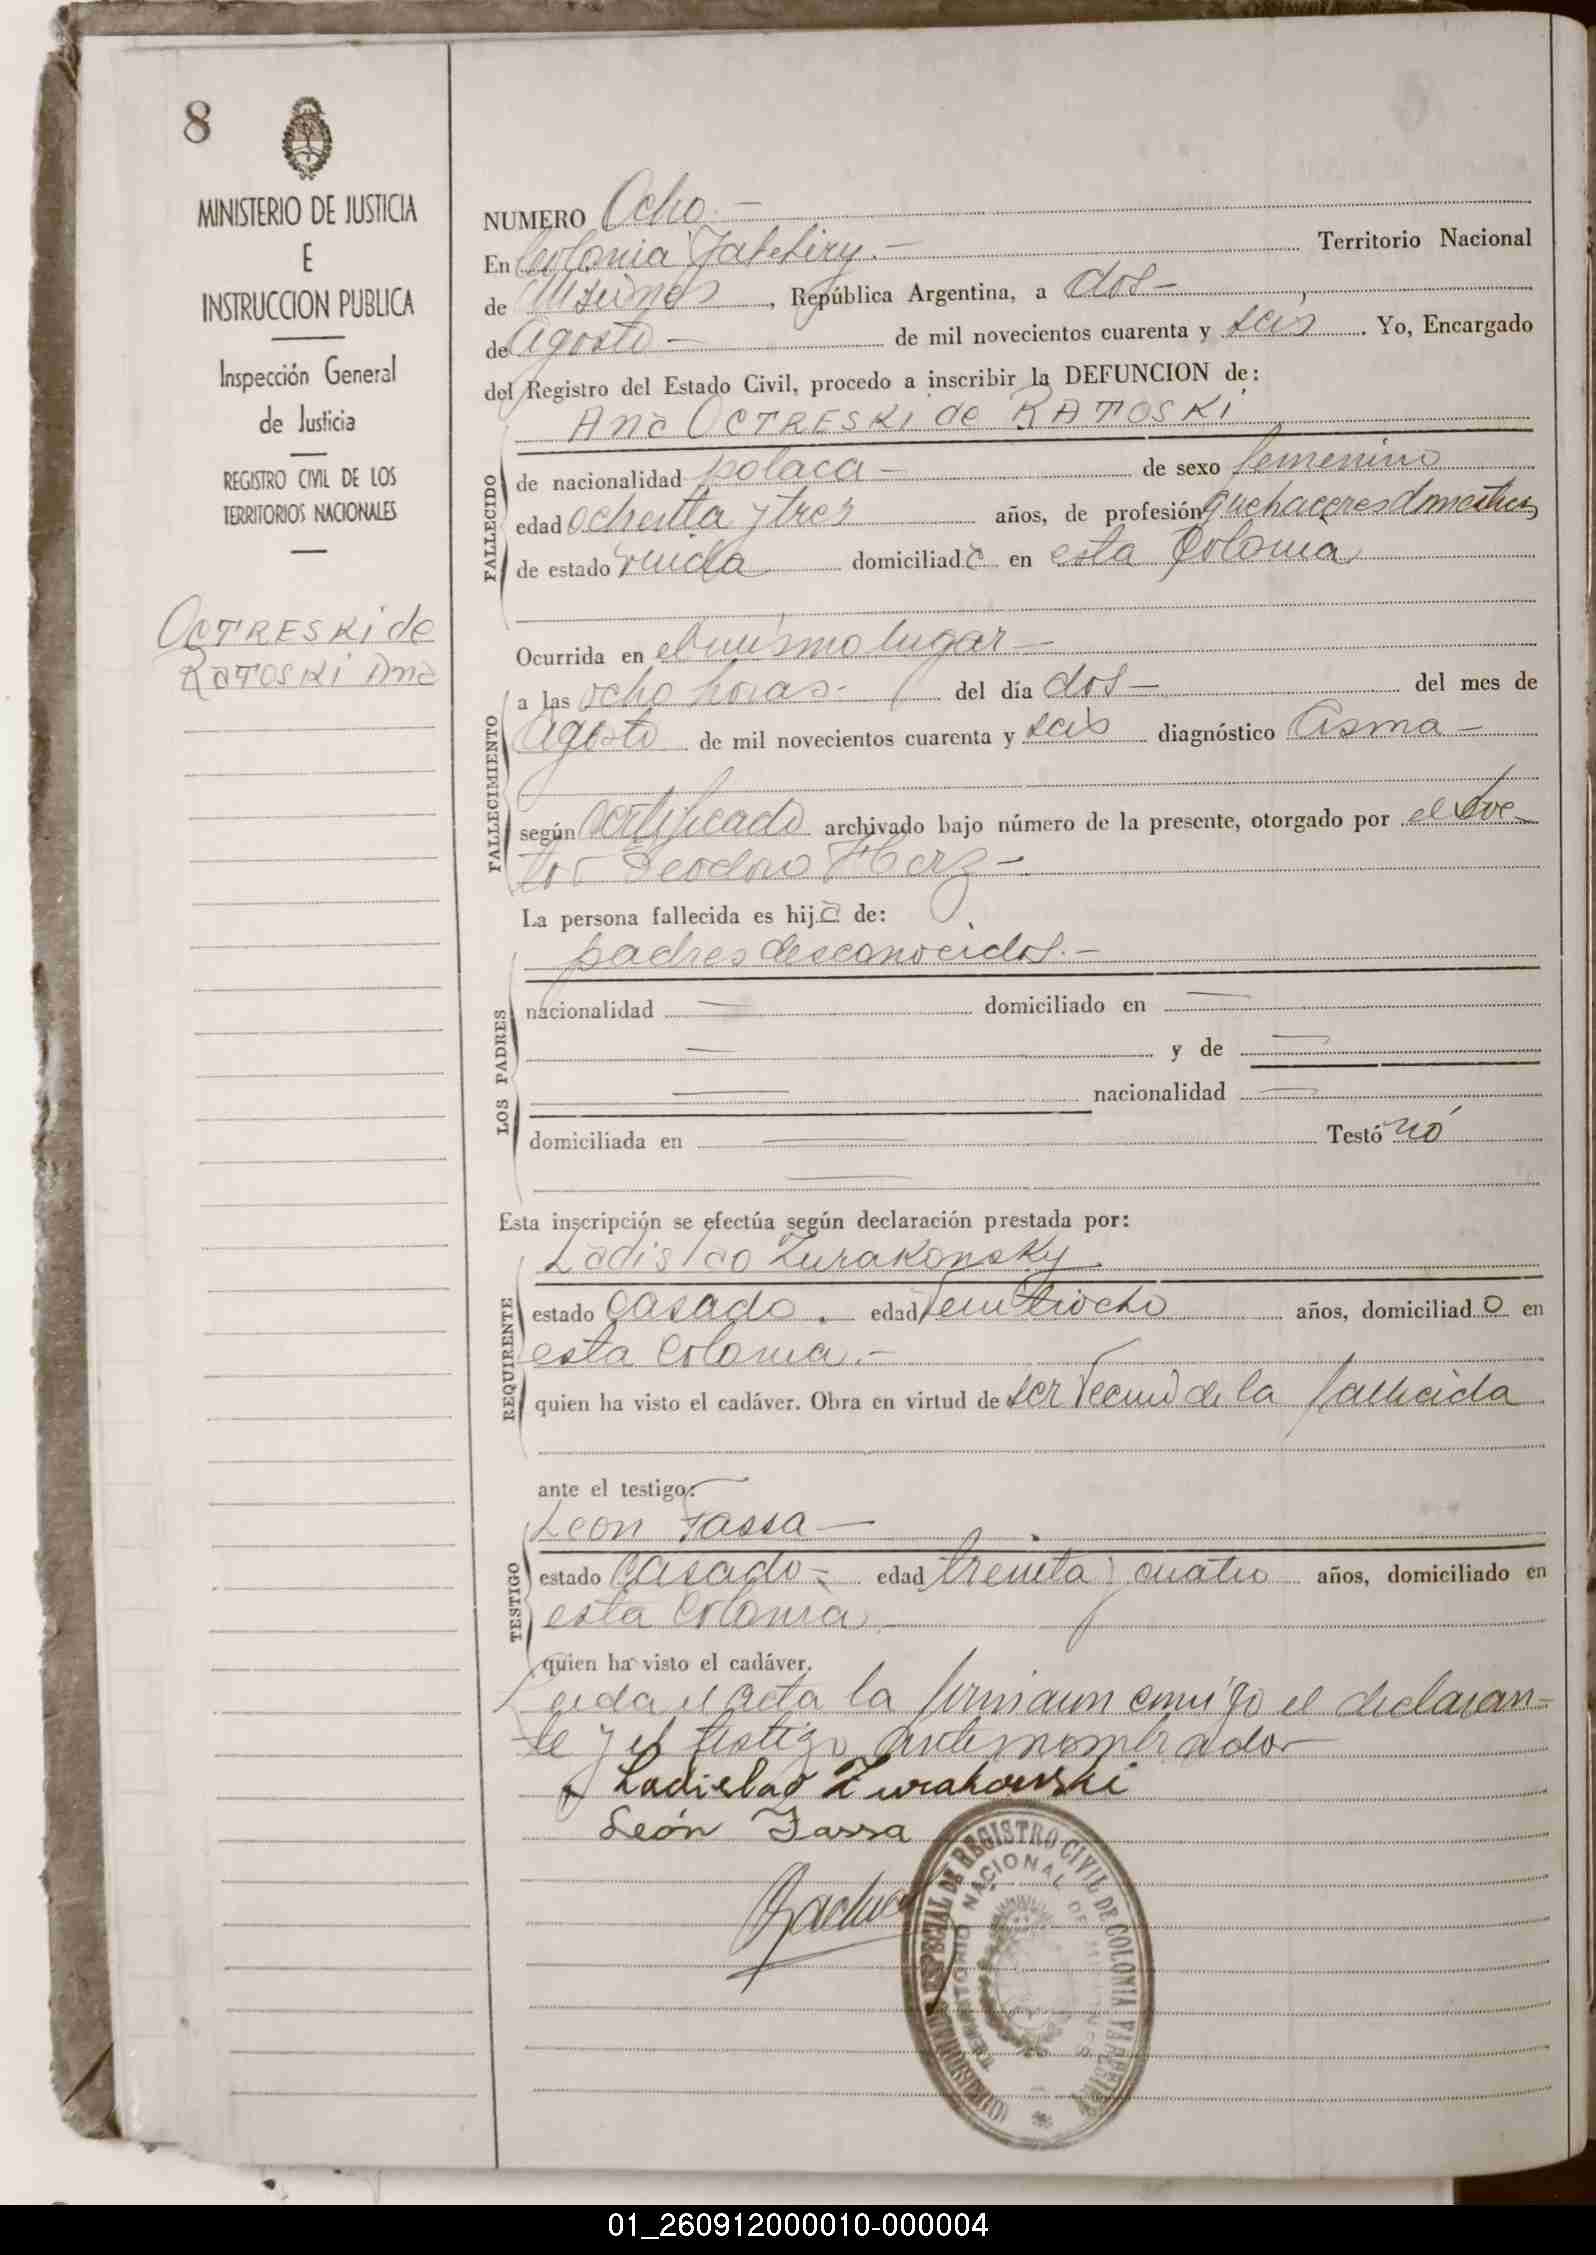 8
MINISTERIO DE JUSTICIA
E
INSTRUCCION PUBLICA
Inspección General
de Justicia
REGISTRO CIVIL DE LOS
TERRITORIOS NACIONALES
OCTRESKI de
RATOSKI Ana
NUMERO Ocho.-
En Colonia Yabebiry.- Territorio Nacional
de Misiones, República Argentina, a dos-
de Agosto- de mil novecientos cuarenta y seis. Yo, Encargado
del Registro del Estado Civil, procedo a inscribir la DEFUNCION de:
Ana OCTRESKI de RATOSKI
FALLECIDO
de nacionalidad polaca- de sexo femenino
edad ochenta y tres años, de profesión quehaceres domesticos
de estado viuda domiciliada en esta Colonia
Ocurrida en el mismo lugar-
FALLECIMIENTO
a las ocho horas- del día dos- del mes de
Agosto de mil novecientos cuarenta y seis diagnóstico Asma-
según certificado archivado bajo número de la presente, otorgado por el Doc-
tor Teodoro Herz-
La persona fallecida es hija de:
LOS PADRES
padres desconocidos.-
nacionalidad — domiciliado en —
— y de —
— nacionalidad —
domiciliada en — Testó nó
—
Esta inscripción se efectúa según declaración prestada por:
REQUIRENTE
Ladislao Zurakonsky
estado casado. edad veintiocho años, domiciliado en
esta Colonia.-
quien ha visto el cadáver. Obra en virtud de ser vecino de la fallecida
ante el testigo:
TESTIGO
Leon Fassa-
estado casado- edad treinta y cuatro años, domiciliado en
esta Colonia
quien ha visto el cadáver.
Leida el acta la firmaron conmigo el declaran-
te y el testigo antenombrador
Ladislao Zurakowski
León Fassa
REGISTRO CIVIL DE COLONIA YABEBIRY
TERRITORIO NACIONAL DE MISIONES
01_260912000010-000004